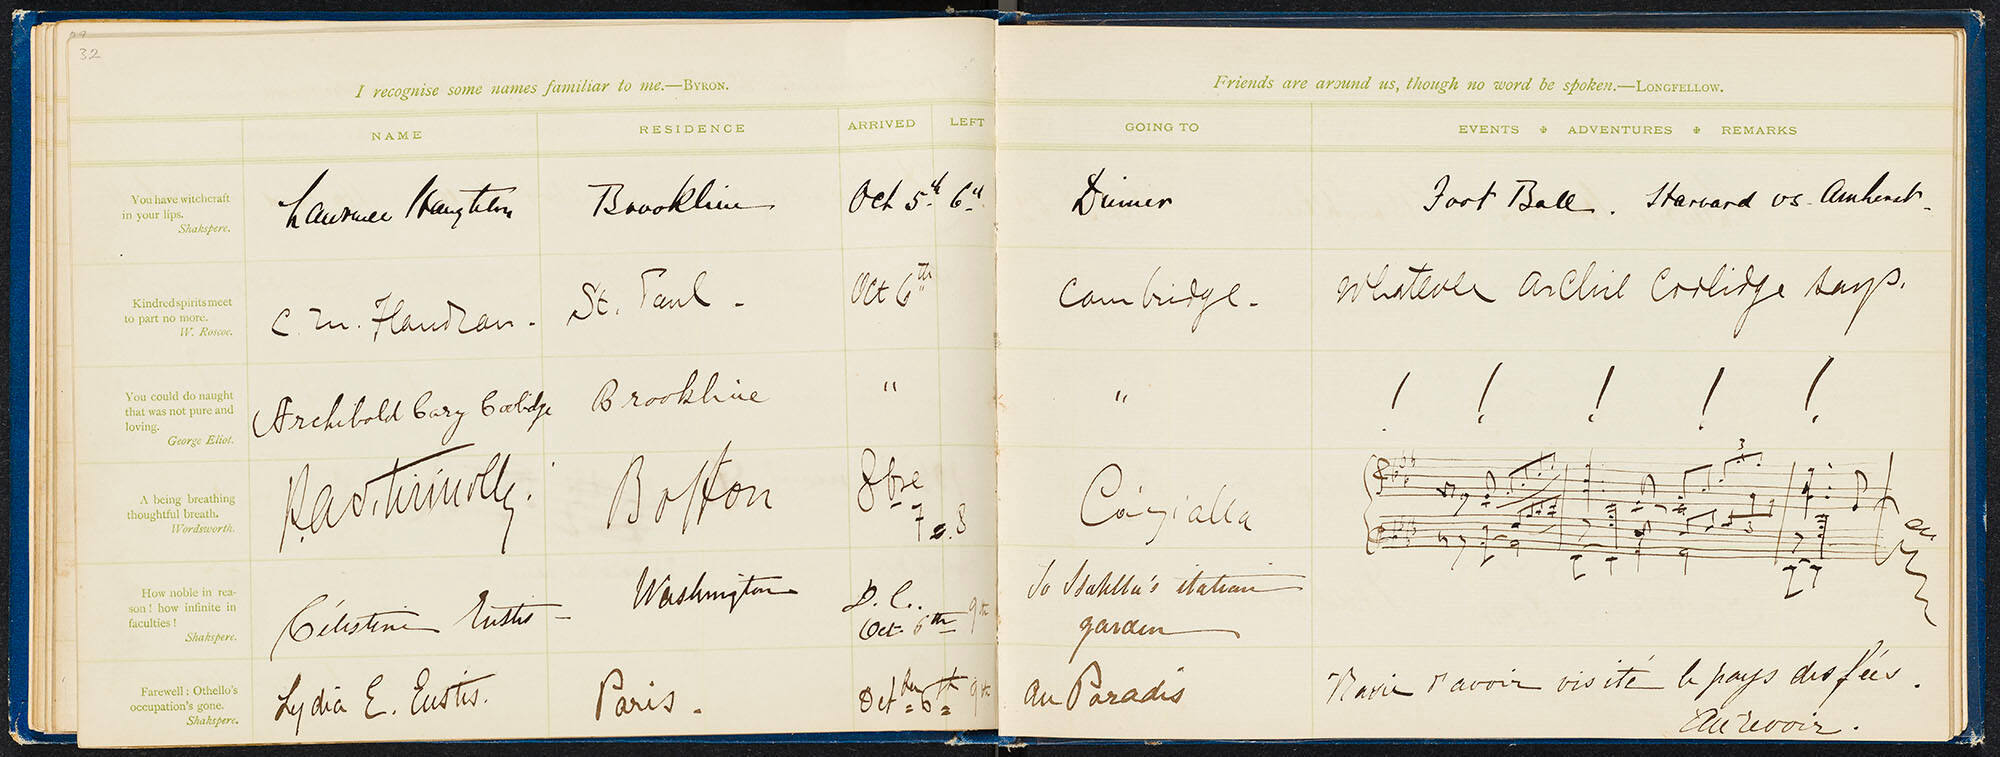 32
I recognise some names familiar to me.—BYRON.
Friends are around us, though no word be spoken.—LONGFELLOW.
NAME RESIDENCE ARRIVED LEFT GOING TO EVENTS ✠ ADVENTURES ✠ REMARKS
You have witchcraft
in your lips.
Shakspere.
Lawrence Haughton Brookline Oct 5th 6th Dinner Foot Ball. Harvard vs. Amherst.
Kindred spirits meet
to part no more.
W. Roscoe.
C. M. Flandrau. St. Paul. Oct 6th Cambridge. Whatever Archie Coolidge says.
You could do naught
that was not pure and
loving.
George Eliot.
Archibald Cary Coolidge Brookline " " ! ! ! ! !
A being breathing
thoughtful breath.
Wordsworth.
Boston 8bre
7 8
3
3
How noble in rea-
son! how infinite in
faculties!
Shakspere.
Célestine Eustis Washington D.C.
Oct. 6th 9th
To Isabella's italian
garden
Farewell: Othello's
occupation's gone.
Shakspere.
Lydia E. Eustis. Paris. Oct 6th 9th au Paradis Ravie d'avoir visité le pays des fées.
Au revoir.